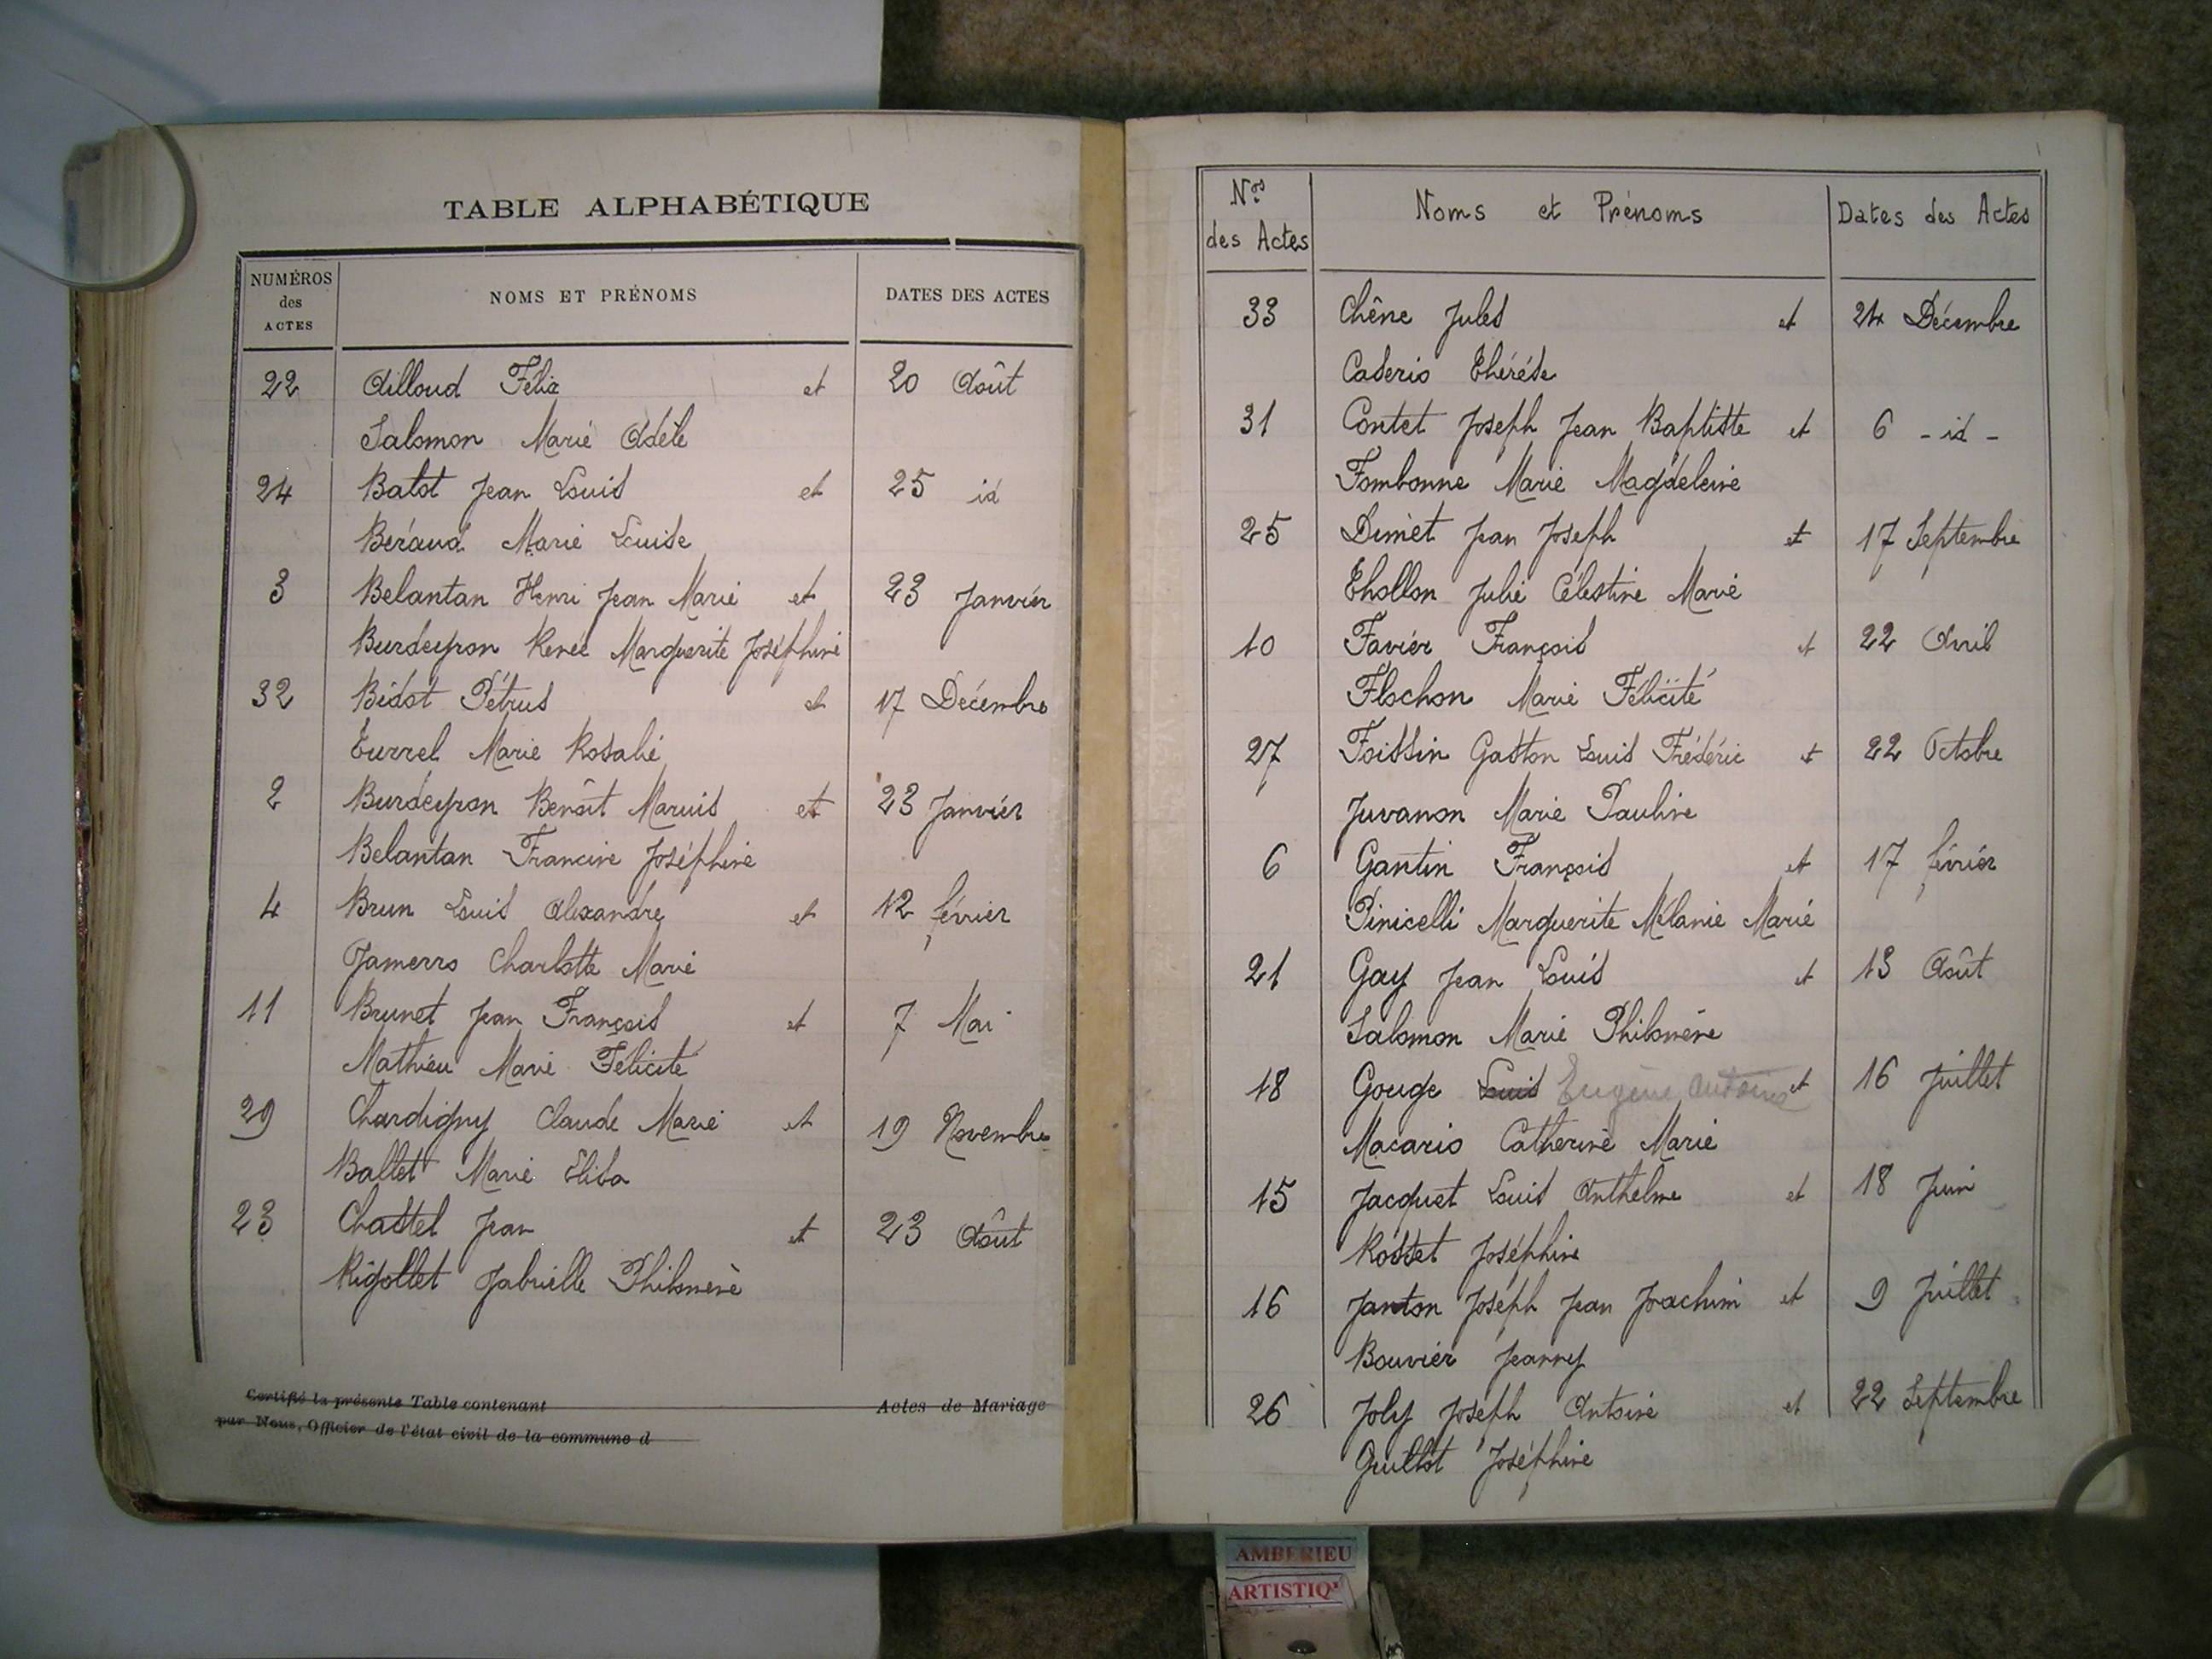 TABLE ALPHABÉTIQUE
NUMÉROS des ACTES NOMS ET PRÉNOMS DATES DES ACTES
22 Ailloud Félix et 20 Août
Salomon Marie Adèle
24 Balot Jean Louis et 25 id
Béraud Marie Louise
3 Belantan Henri Jean Marie et 23 Janvier
Burdeyron Renée Marguerite Joséphine
32 Bidot Pétrus et 17 Décembre
Turrel Marie Rosalie
2 Burdeyron Benoît Marius et 23 Janvier
Belantan Francine Joséphine
4 Brun Louis Alexandre et 12 février
Jamerro Charlotte Marie
11 Brunet Jean François et 7 Mai
Mathieu Marie Félicité
29 Chardigny Claude Marie et 19 Novembre
Ballet Marie Elisa
23 Chastel Jean et 23 Août
Rigollet Gabrielle Philomène
Certifié la présente Table contenant Actes de Mariage
par Nous, Officier de l'état civil de la commune d
Nos des Actes Noms et Prénoms Dates des Actes
33 Chêne Jules et 24 Décembre
Caserio Thérése
31 Contet Joseph Jean Baptiste et 6 - id -
Fombonne Marie Magdeleine
25 Dimet Jean Joseph et 17 Septembre
Thollon Julie Célestine Marie
10 Favier François et 22 Avril
Flochon Marie Félicité
27 Foissin Gaston Louis Frédéric et 22 Octobre
Juvanon Marie Pauline
6 Gantin François et 17 février
Pinicelli Marguerite Mélanie Marie
21 Gay Jean Louis et 13 Août
Salomon Marie Philomène
18 Gouge Louis Eugène Antoine et 16 Juillet
Macario Catherine Marie
15 Jacquet Louis Anthelme et 18 Juin
Rosset Joséphine
16 Janton Joseph Jean Joachim et 9 Juillet
Bouvier Jeanny
26 Joly Joseph Antoine et 22 Septembre
Guillot Joséphine
AMBERIEU
ARTISTIQ